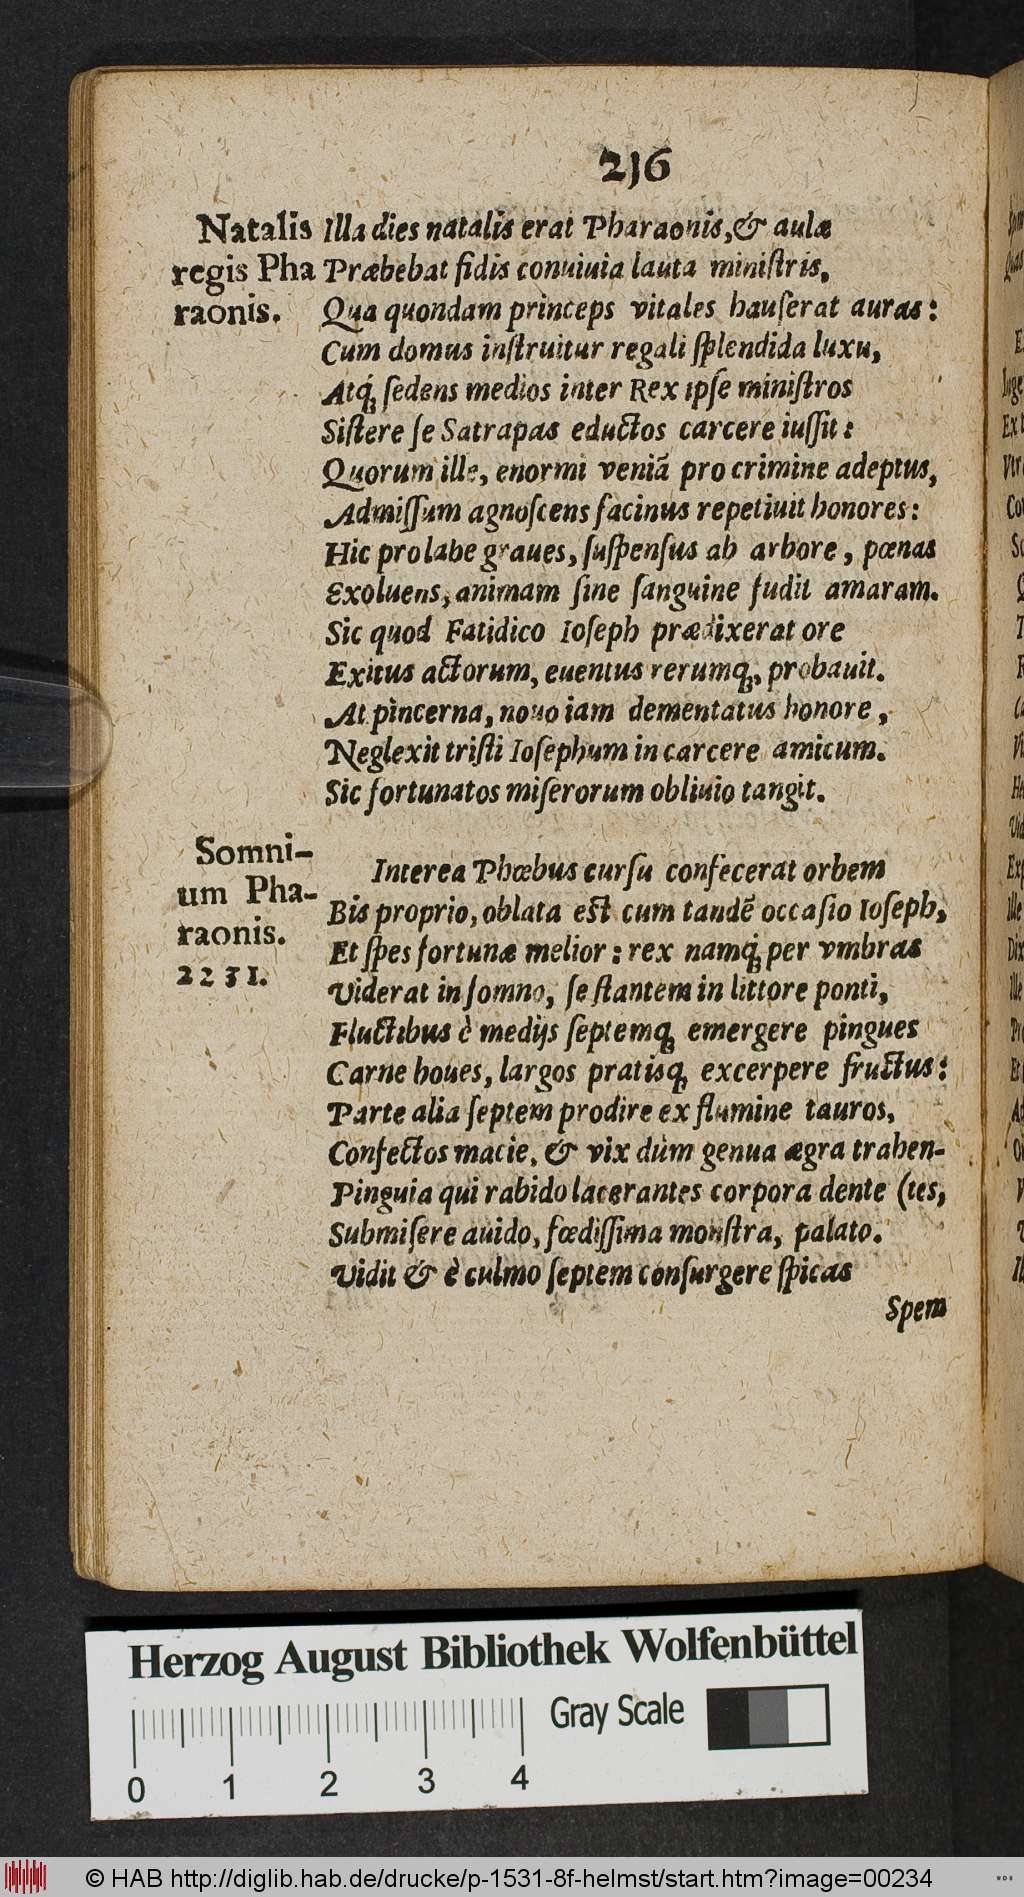 216
Natalis
regis Pha
raonis.
Illa dies natalis erat Pharaonis, & aulæ
Præbebat fidis conuiuia lauta miniſtris,
Qua quondam princeps vitales hauſerat auras:
Cum domus inſtruitur regali ſplendida luxu,
Atq́; ſedens medios inter Rex ipſe miniſtros
Siſtere ſe Satrapas eductos carcere iuſſit:
Quorum ille, enormi veniā pro crimine adeptus,
Admiſſum agnoſcens facinus repetiuit honores:
Hic pro labe graues, ſuſpenſus ab arbore, pœnas
Exoluens, animam ſine ſanguine fudit amaram.
Sic quod Fatidico Ioſeph prædixerat ore
Exitus actorum, euentus rerumq;, probauit.
At pincerna, nouo iam dementatus honore,
Neglexit triſti Ioſephum in carcere amicum.
Sic fortunatos miſerorum obliuio tangit.
Somni-
um Pha-
raonis.
2231.
Interea Phœbus curſu confecerat orbem
Bis proprio, oblata eſt cum tandē occaſio Ioſeph,
Et ſpes fortunæ melior: rex namq́; per vmbras
Viderat in ſomno, ſe ſtantem in littore ponti,
Fluctibus è medijs ſeptemq; emergere pingues
Carne boues, largos pratisq; excerpere fructus:
Parte alia ſeptem prodire ex flumine tauros,
Confectos macie, & vix dùm genua ægra trahen-
Pinguia qui rabido lacerantes corpora dente (tes,
Submiſere auido, fœdiſſima monſtra, palato.
Vidit & è culmo ſeptem conſurgere ſpicas
Spem
Herzog August Bibliothek Wolfenbüttel
Gray Scale
0 1 2 3 4
© HAB http://diglib.hab.de/drucke/p-1531-8f-helmst/start.htm?image=00234